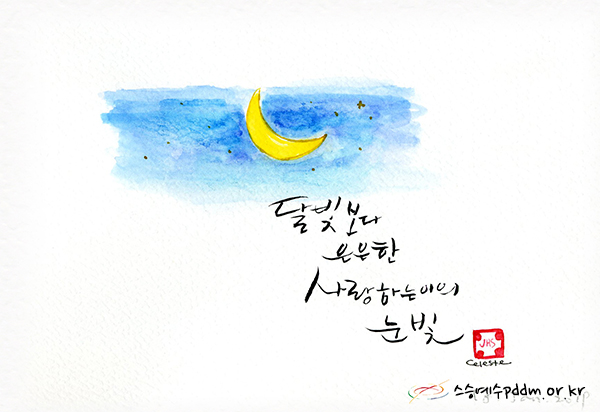 달빛보다
은은한
사랑하는이의
눈빛
JHS
Celeste
스승예수pddm.or.kr